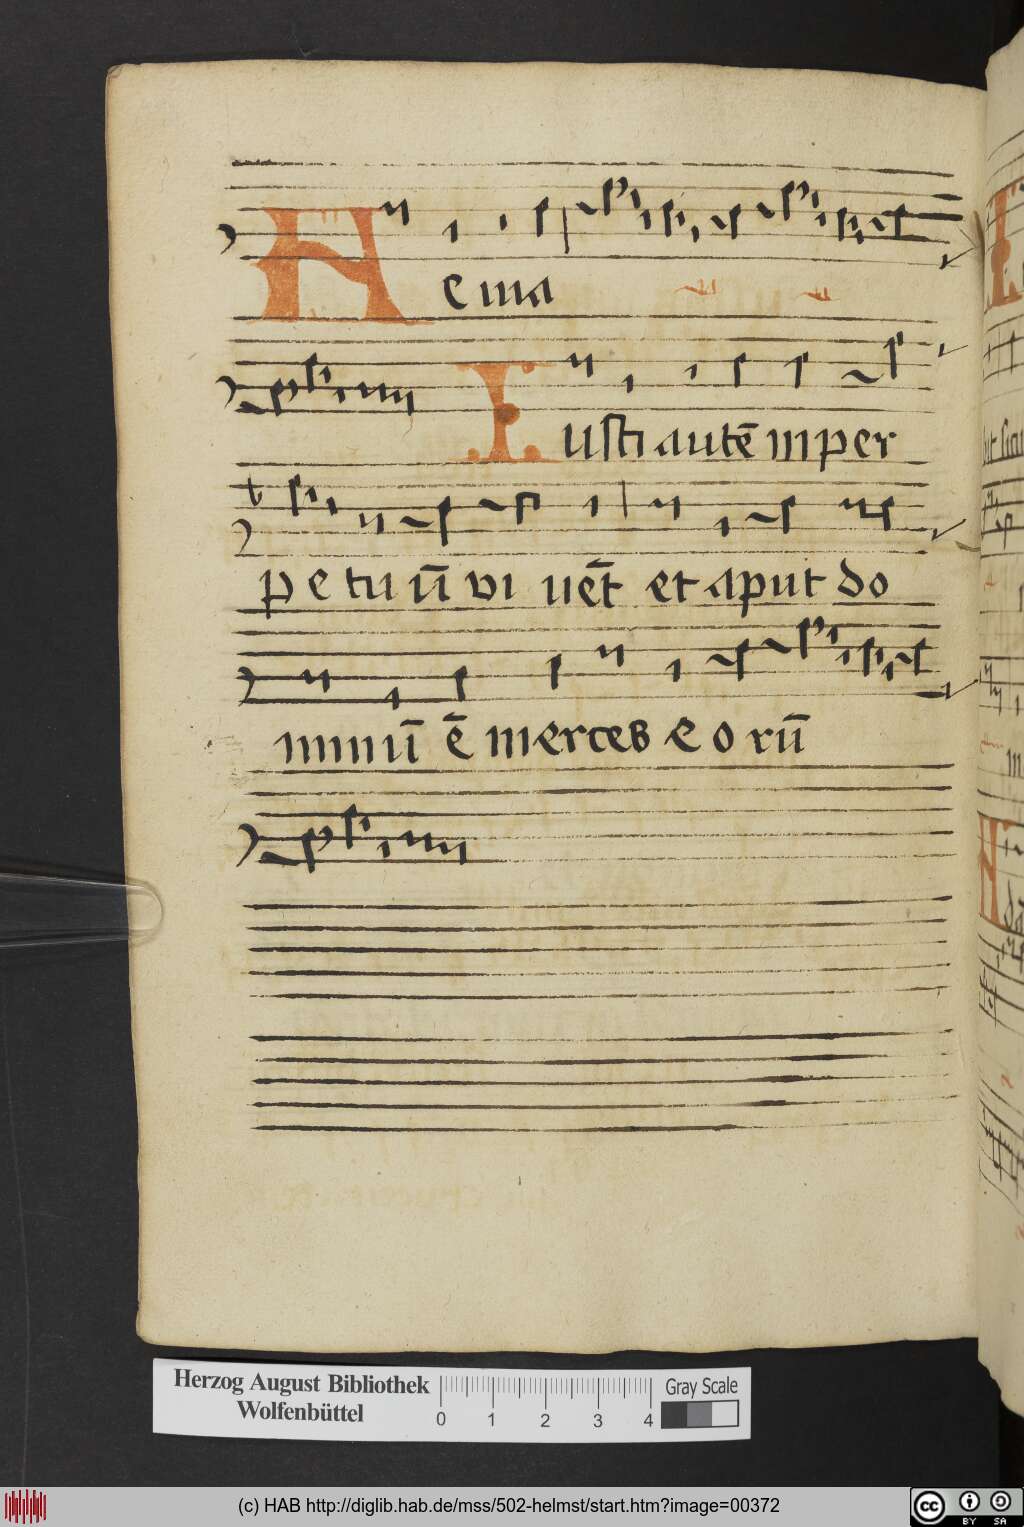 A e ma
Iusti autē in per
pe tu ū vi uēt et aput do
minū ē merces e o rū
Herzog August Bibliothek
Wolfenbüttel
0 1 2 3 4
Gray Scale
(c) HAB http://diglib.hab.de/mss/502-helmst/start.htm?image=00372
cc BY SA